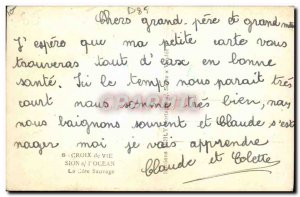 D85
Chers grand-père et grand
J'espère que ma petite carte vous
trouveras tout d'eux en bonne
santé. Ici le temps nous parait très
court nous somme très bien, nas
nous baignons souvent et Claude s'est
nager moi je vais apprendre
Claude et Colette
6 - CROIX de VIE
SION s/ l'OCÉAN
La Côte Sauvage